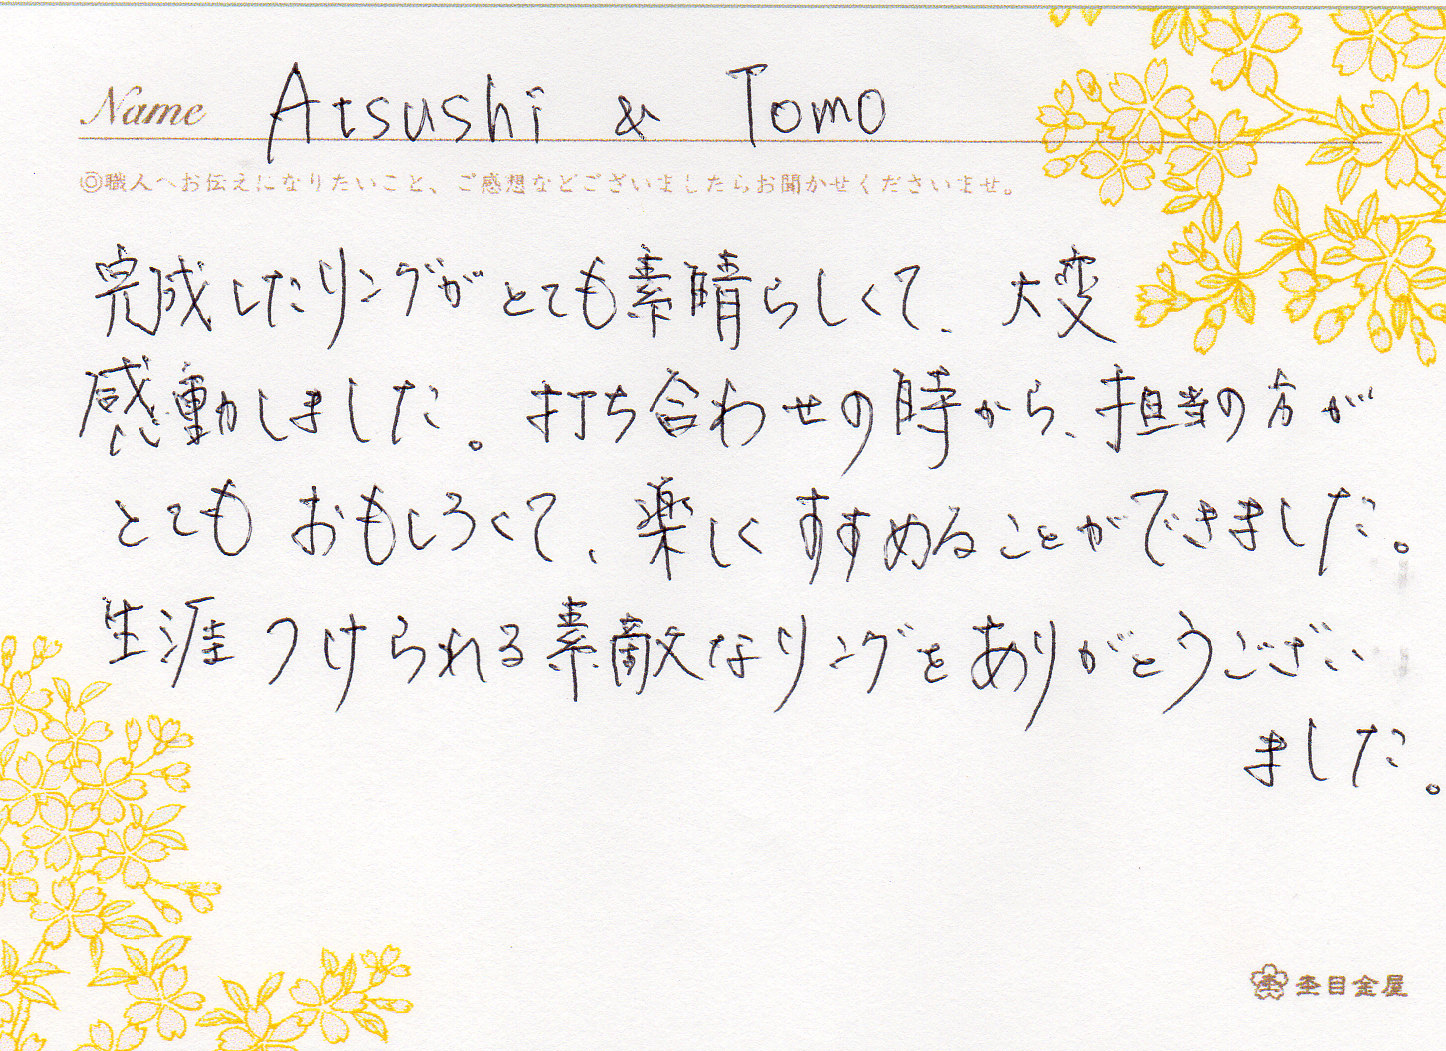 Name Atsushi & Tomo
◎職人へお伝えになりたいこと、ご感想などございましたらお聞かせくださいませ。
完成したリングがとても素晴らしくて、大変
感動しました。打ち合わせの時から、担当の方が
とてもおもしろくて、楽しくすすめることができました。
生涯つけられる素敵なリングをありがとうござい
ました。
杢目金屋